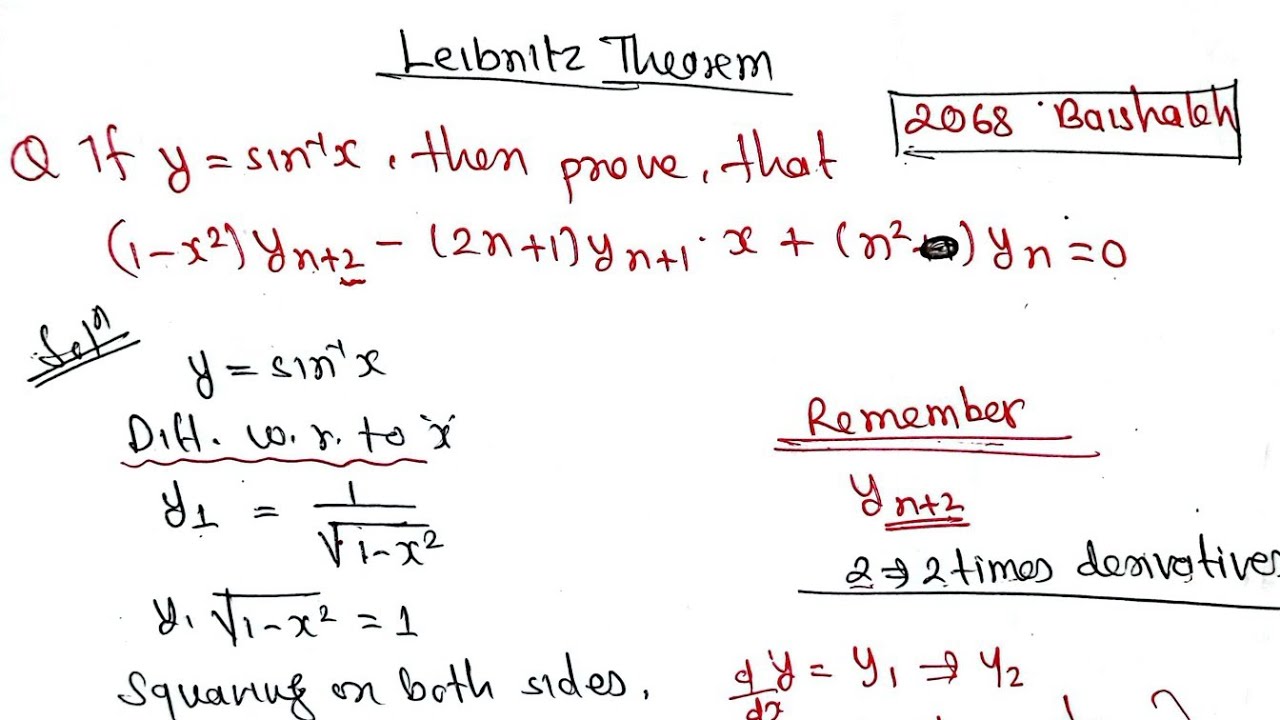 Leibnitz Theorem
2068 Baishakh
Q If y = sin⁻¹x, then prove, that
(1-x²) yₙ₊₂ - (2n+1) yₙ₊₁ · x + (n² ) yₙ = 0
Solⁿ
y = sin⁻¹x
Diff. w. r. to 'x'
y₁ = 1/√(1-x²)
y₁ √(1-x²) = 1
Squaring on both sides,
Remember
yₙ₊₂
2 ⇒ 2 times derivatives
d/dx y = y₁ ⇒ y₂